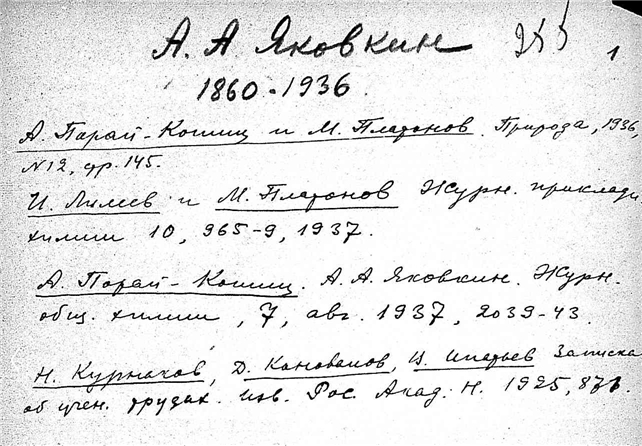 А. А Яковкин 1
1860-1936.
А. Парай-Кошиц и М. Платонов. Природа, 1936,
N12, стр. 145.
И. Лилеев и М. Платонов Журн. приклад.
химии 10, 965-9, 1937.
А. Порай-Кошиц. А. А. Яковкин. Журн.
общ. химии, 7, авг. 1937, 2039-43.
Н. Курнаков, Д. Коновалов, В. Ипатьев Записка
об учен. трудах. Изв. Рос. Акад. Н. 1925,